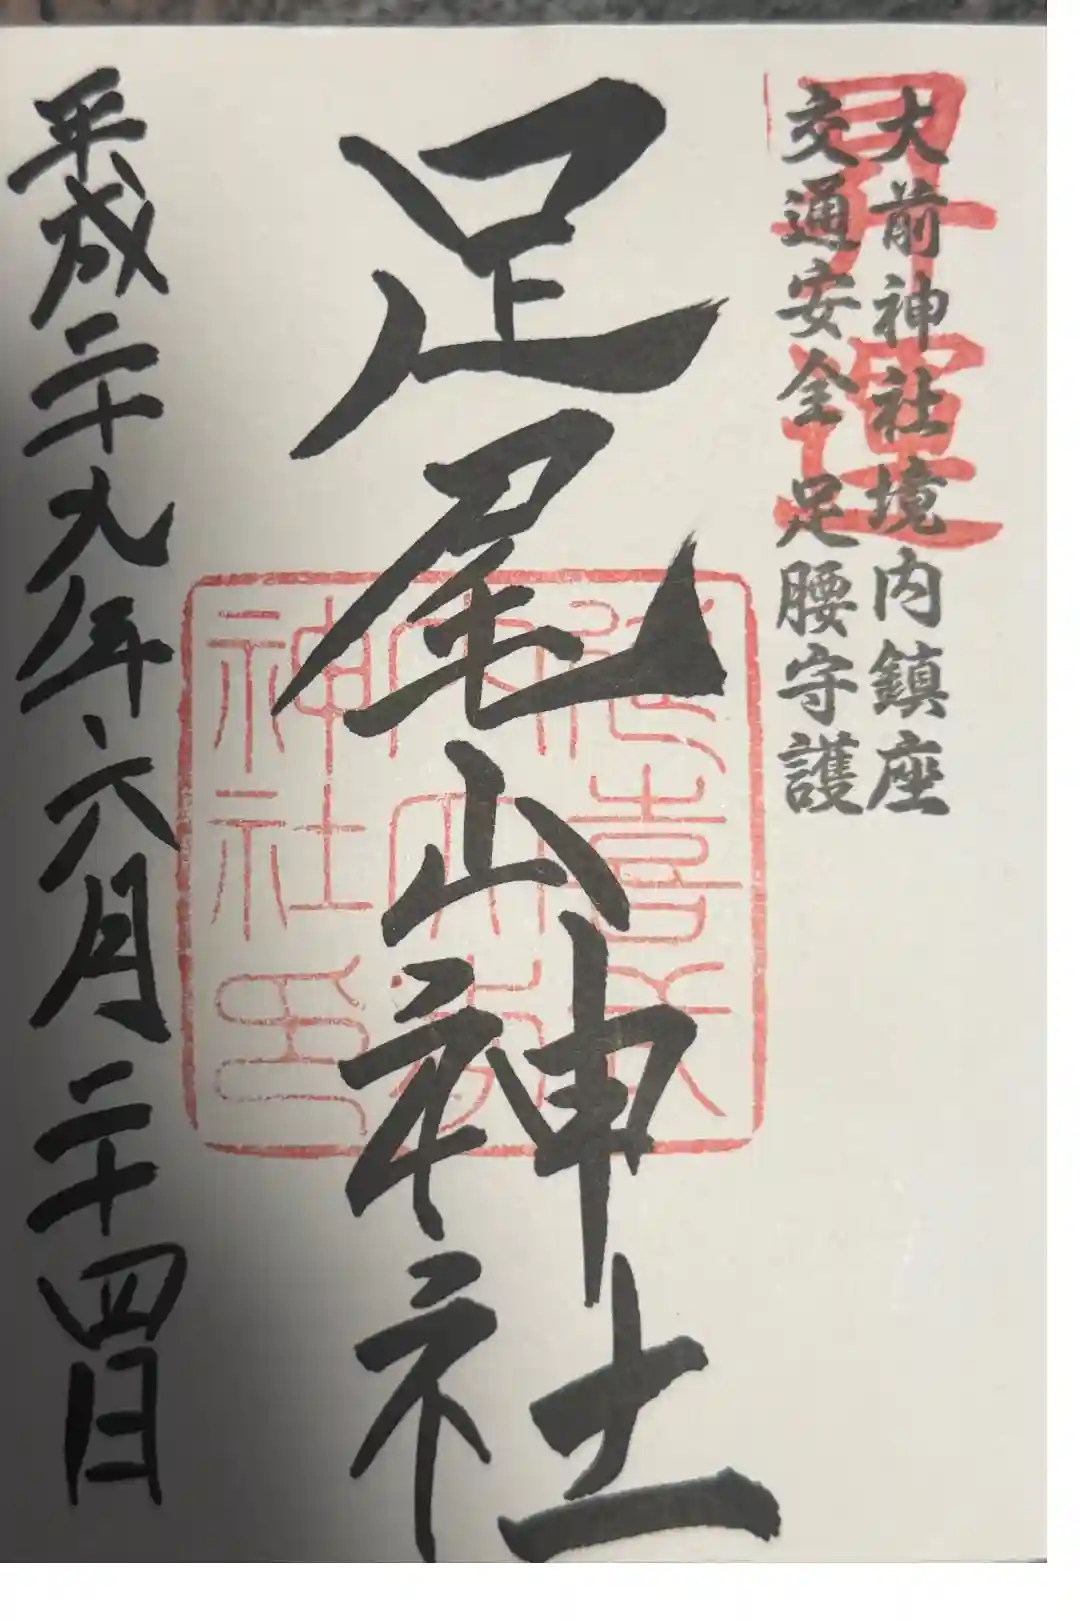 大前神社境内鎮座
交通安全 足腰守護
昇運
足尾山神社
延喜式内大前神社印
平成二十九年六月二十四日